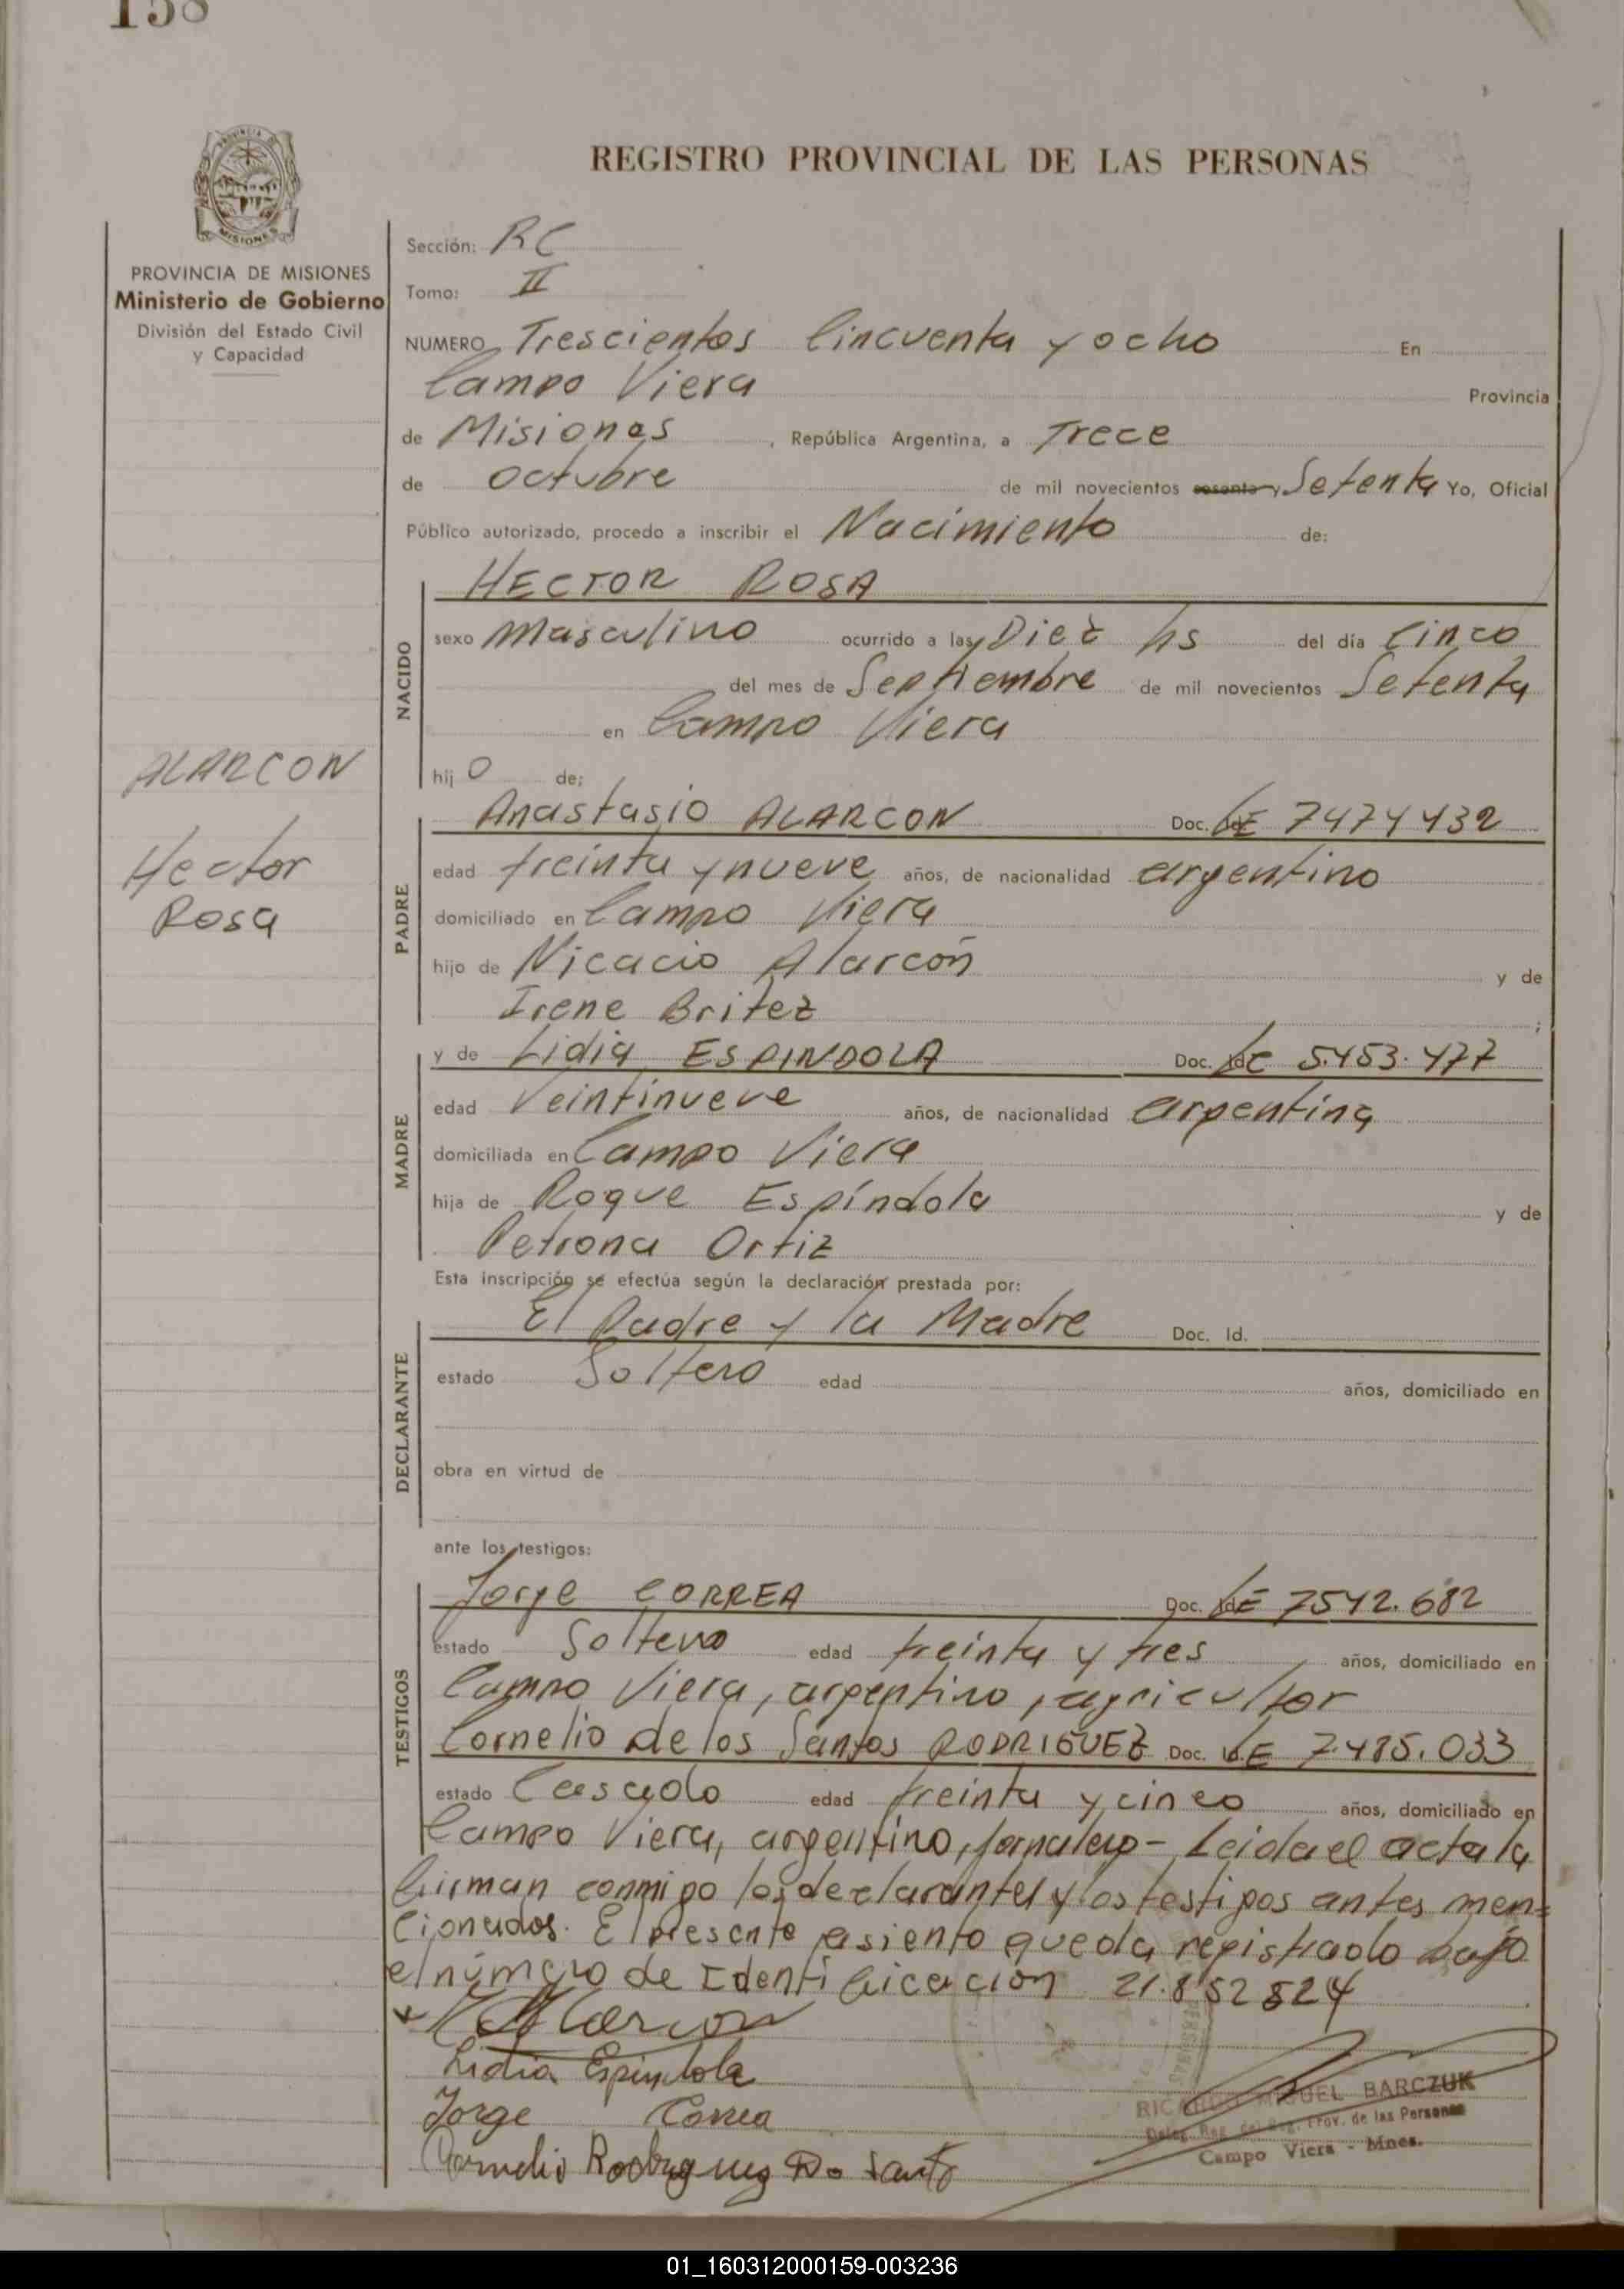 158
REGISTRO PROVINCIAL DE LAS PERSONAS
PROVINCIA DE MISIONES
PROVINCIA DE MISIONES
Ministerio de Gobierno
División del Estado Civil
y Capacidad
Sección: RC
Tomo: II
NUMERO Trescientos Cincuenta y ocho En
Campo Viera Provincia
de Misiones, República Argentina, a Trece
de octubre de mil novecientos sesenta y Setenta Yo, Oficial
Público autorizado, procedo a inscribir el Nacimiento de:
HECTOR ROSA
NACIDO
sexo Masculino ocurrido a las Diez hs del día Cinco
del mes de Septiembre de mil novecientos Setenta
en Campo Viera
hij o de;
ALARCON
Hector
Rosa
Anastasio ALARCON Doc. LE 7474432
PADRE
edad treinta y nueve años, de nacionalidad argentino
domiciliado en Campo Viera
hijo de Nicacio Alarcón y de
Irene Britez ;
y de Lidia ESPINDOLA Doc. LC 5.453.477
MADRE
edad Veintinueve años, de nacionalidad argentina
domiciliada en Campo Viera
hija de Roque Espíndola y de
Petrona Ortiz
Esta inscripción se efectúa según la declaración prestada por:
El Padre y la Madre Doc. Id.
DECLARANTE
estado Soltero edad años, domiciliado en
obra en virtud de
ante los testigos:
Jorge CORREA Doc. LE 7542.682
TESTIGOS
estado Soltero edad treinta y tres años, domiciliado en
Campo Viera, argentino, agricultor
Cornelio de los Santos RODRIGUEZ Doc. LE 7.485.033
estado Casado edad treinta y cinco años, domiciliado en
Campo Viera, argentino, Jornalero - Leida el acta la
firman conmigo los declarantes y los testigos antes men=
cionados. El presente asiento queda registrado bajo
el número de Identificación 21.852824
Alarcon
Lidia Espindola
Jorge Correa
Cornelio Rodriguez Do Santo
RICARDO MIGUEL BARCZUK
Deleg. Reg. del Reg. Prov. de las Personas
Campo Viera - Mnes.
01_160312000159-003236